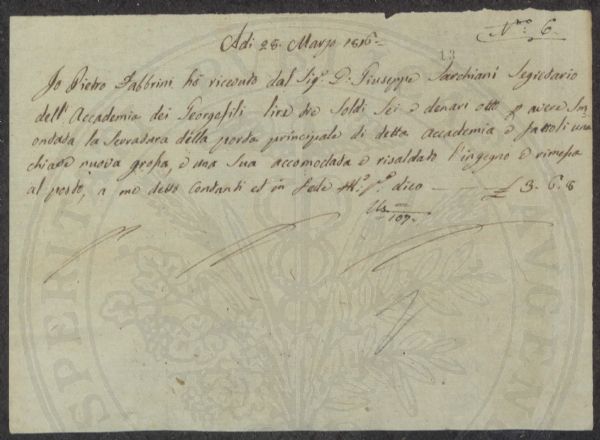 N:° 6.
Adi 28. Marzo 1816
13
Io Pietro Fabbrini hò ricevuto dal Sig.e D: Giuseppe Sarchiani Segretario
dell' Accademia dei Georgofili lire tre Soldi Sei e denari otto p avere Sm
ontata la Serratura della porta principale di detta Accademia e fattoli una
chiave nuova grossa, e una Sua accomodata e risaldato l'ingegno e rimessa
al posto, a me detto Contanti et in fede M:° p:° dico £ 3. 6. 8
107.
PROSPERITATI AUGENDAE